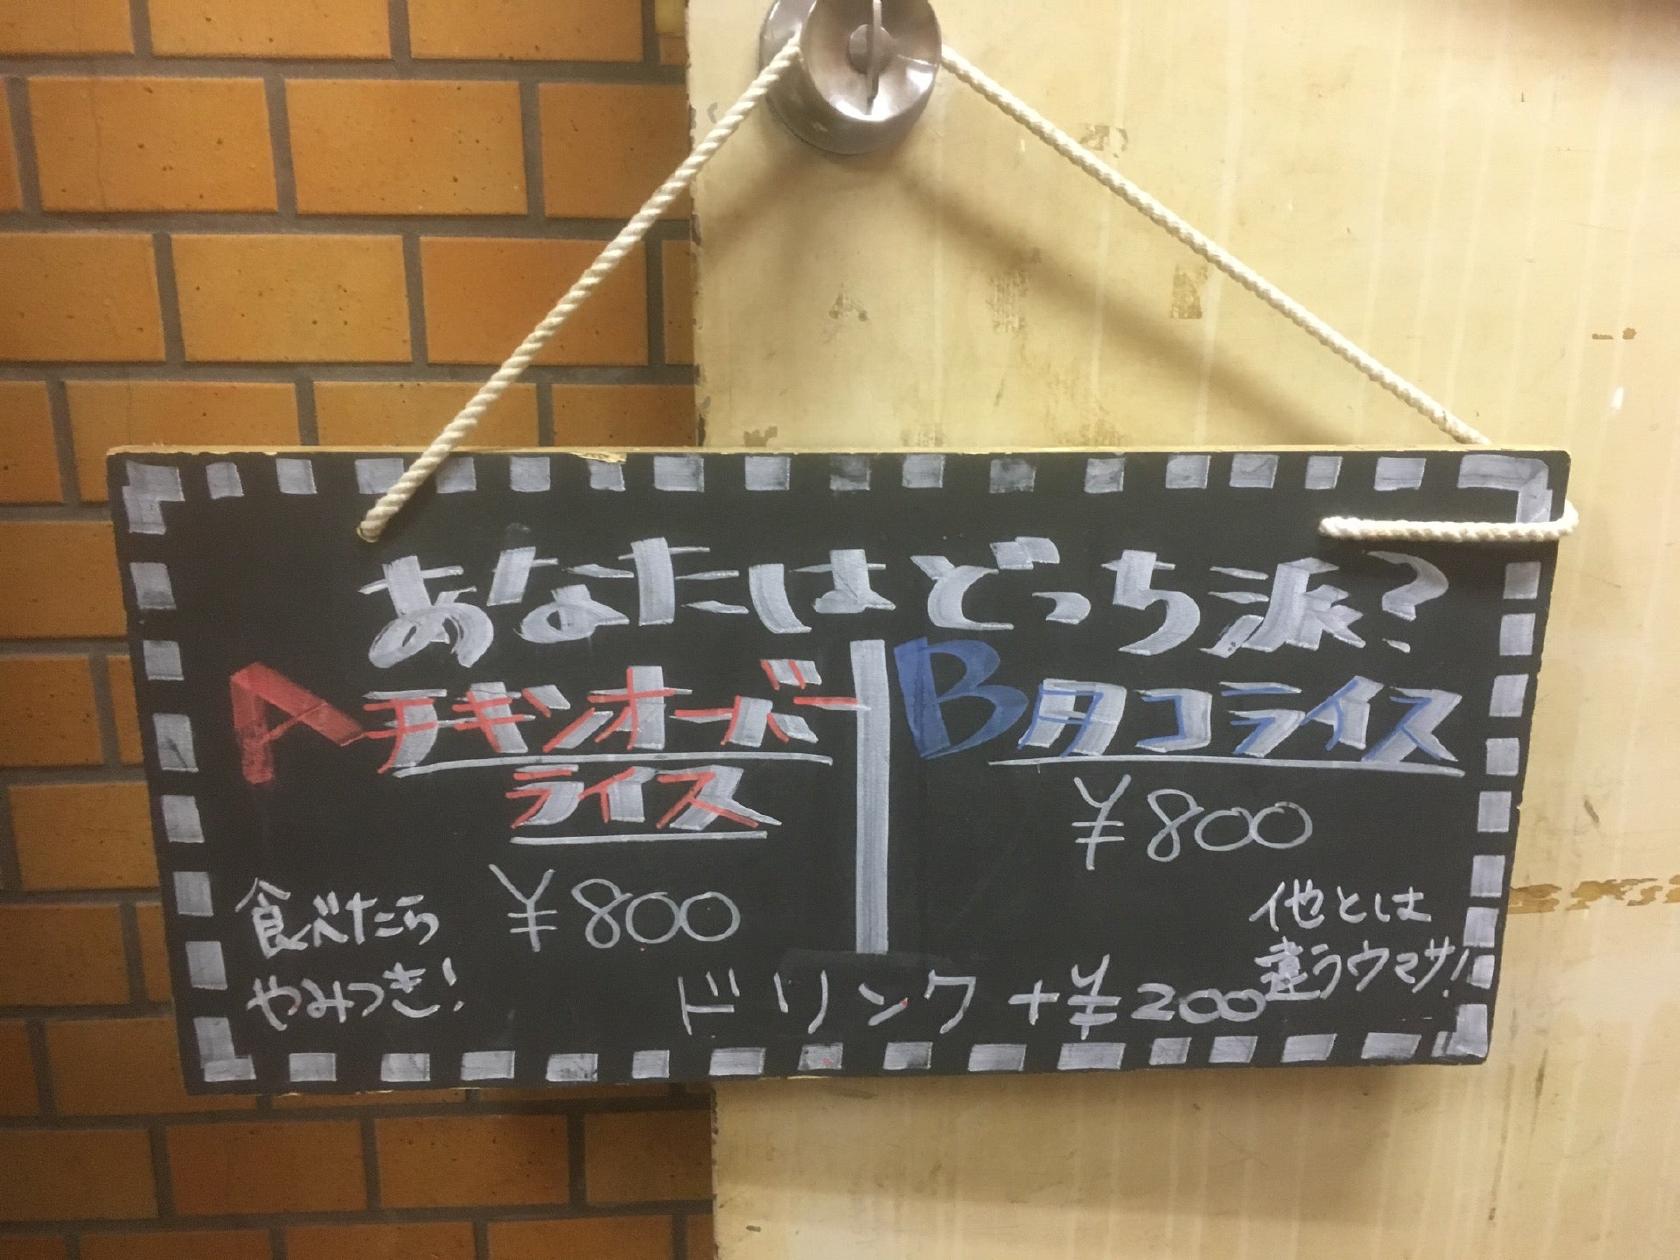 あなたはどっち派?
A チキンオーバー
ライス
¥800
食べたら
やみつき!
B タコライス
¥800
他とは
違うウマサ!
ドリンク +¥200